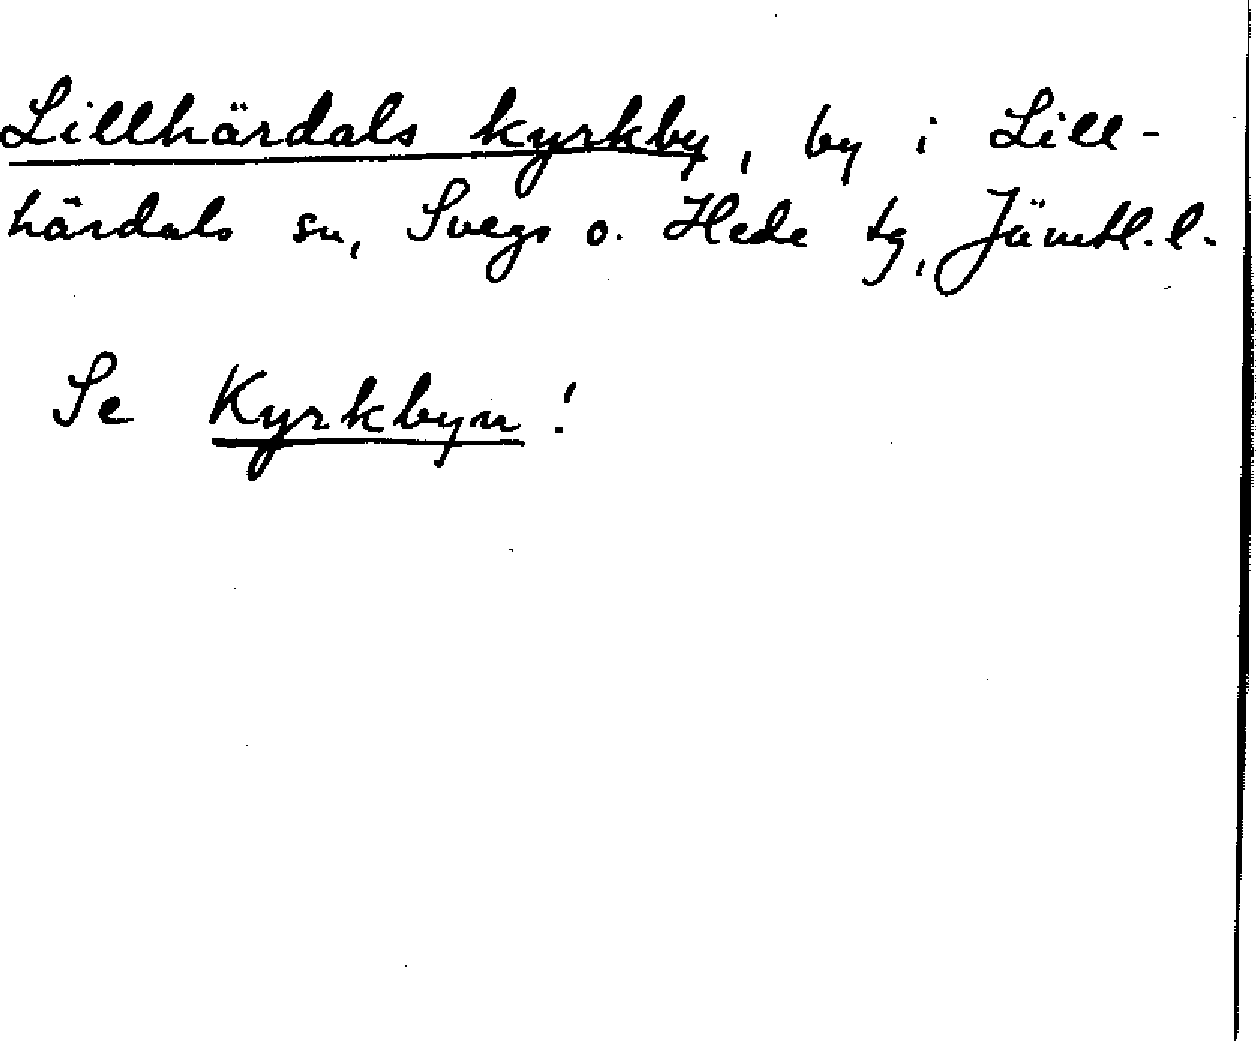 Lillhärdals kyrkby, by i Lill-
härdals sn, Svegs o. Hede tg, Jämtl. l.
Se Kyrkbyn!